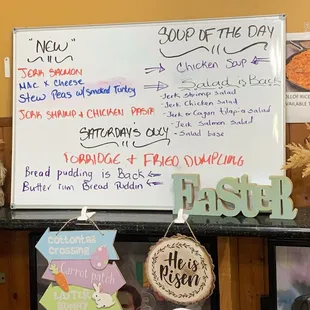 "NEW"
JERK SALMON
MAC X CHEESE
STEW PEAS w/ Smoked Turkey
JERK SHRIMP & CHICKEN PASTA
SOUP OF THE DAY
Chicken Soup
Salad is Back
- Jerk shrimp salad
- Jerk Chicken Salad
- Jerk or Cajan Tilapia Salad
- Jerk Salmon Salad
- Salad base
SATURDAYS ONLY
PORRIDGE + FRIED DUMPLING
Bread pudding is Back
Butter rum Bread Puddin
EASTER
cottontail
CROSSING
Carrot patch
EASTER
He is
Risen